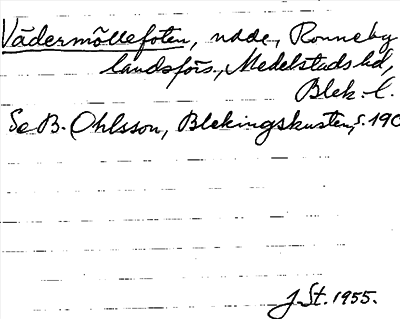 Vädermöllefoten, udde, Ronneby
landsförs., Medelstads hd,
Blek. l.
Se B. Ohlsson, Blekingskusten, s. 190
J. St. 1955.